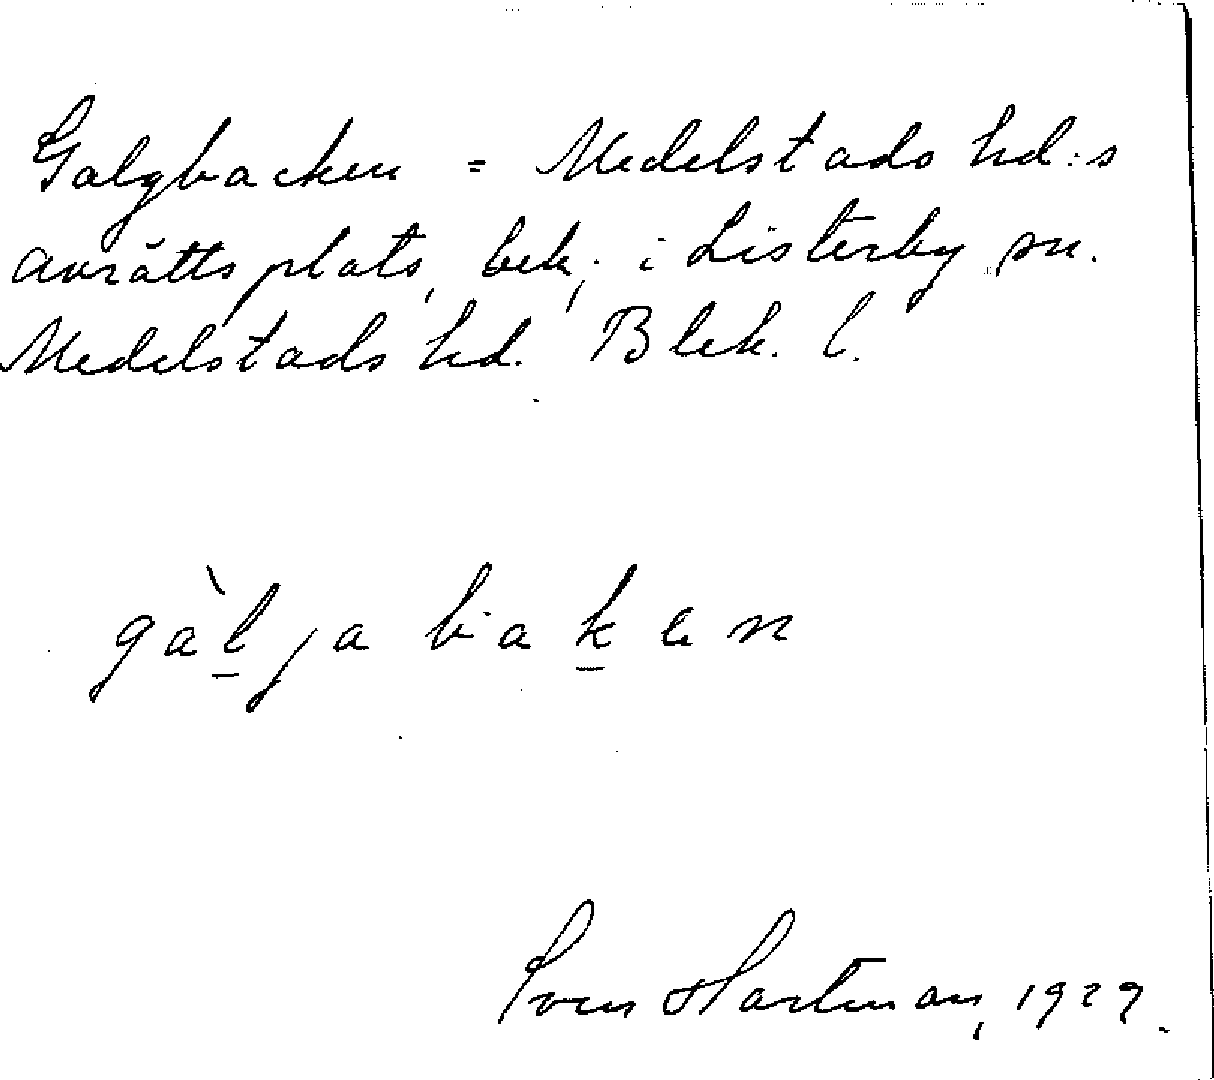 Galgbacken = Medelstads hd:s
avrättsplats, bek, i Listerby sn.
Medelstads hd. Blek. l.
gàljabaken
Sven Hartman, 1929.